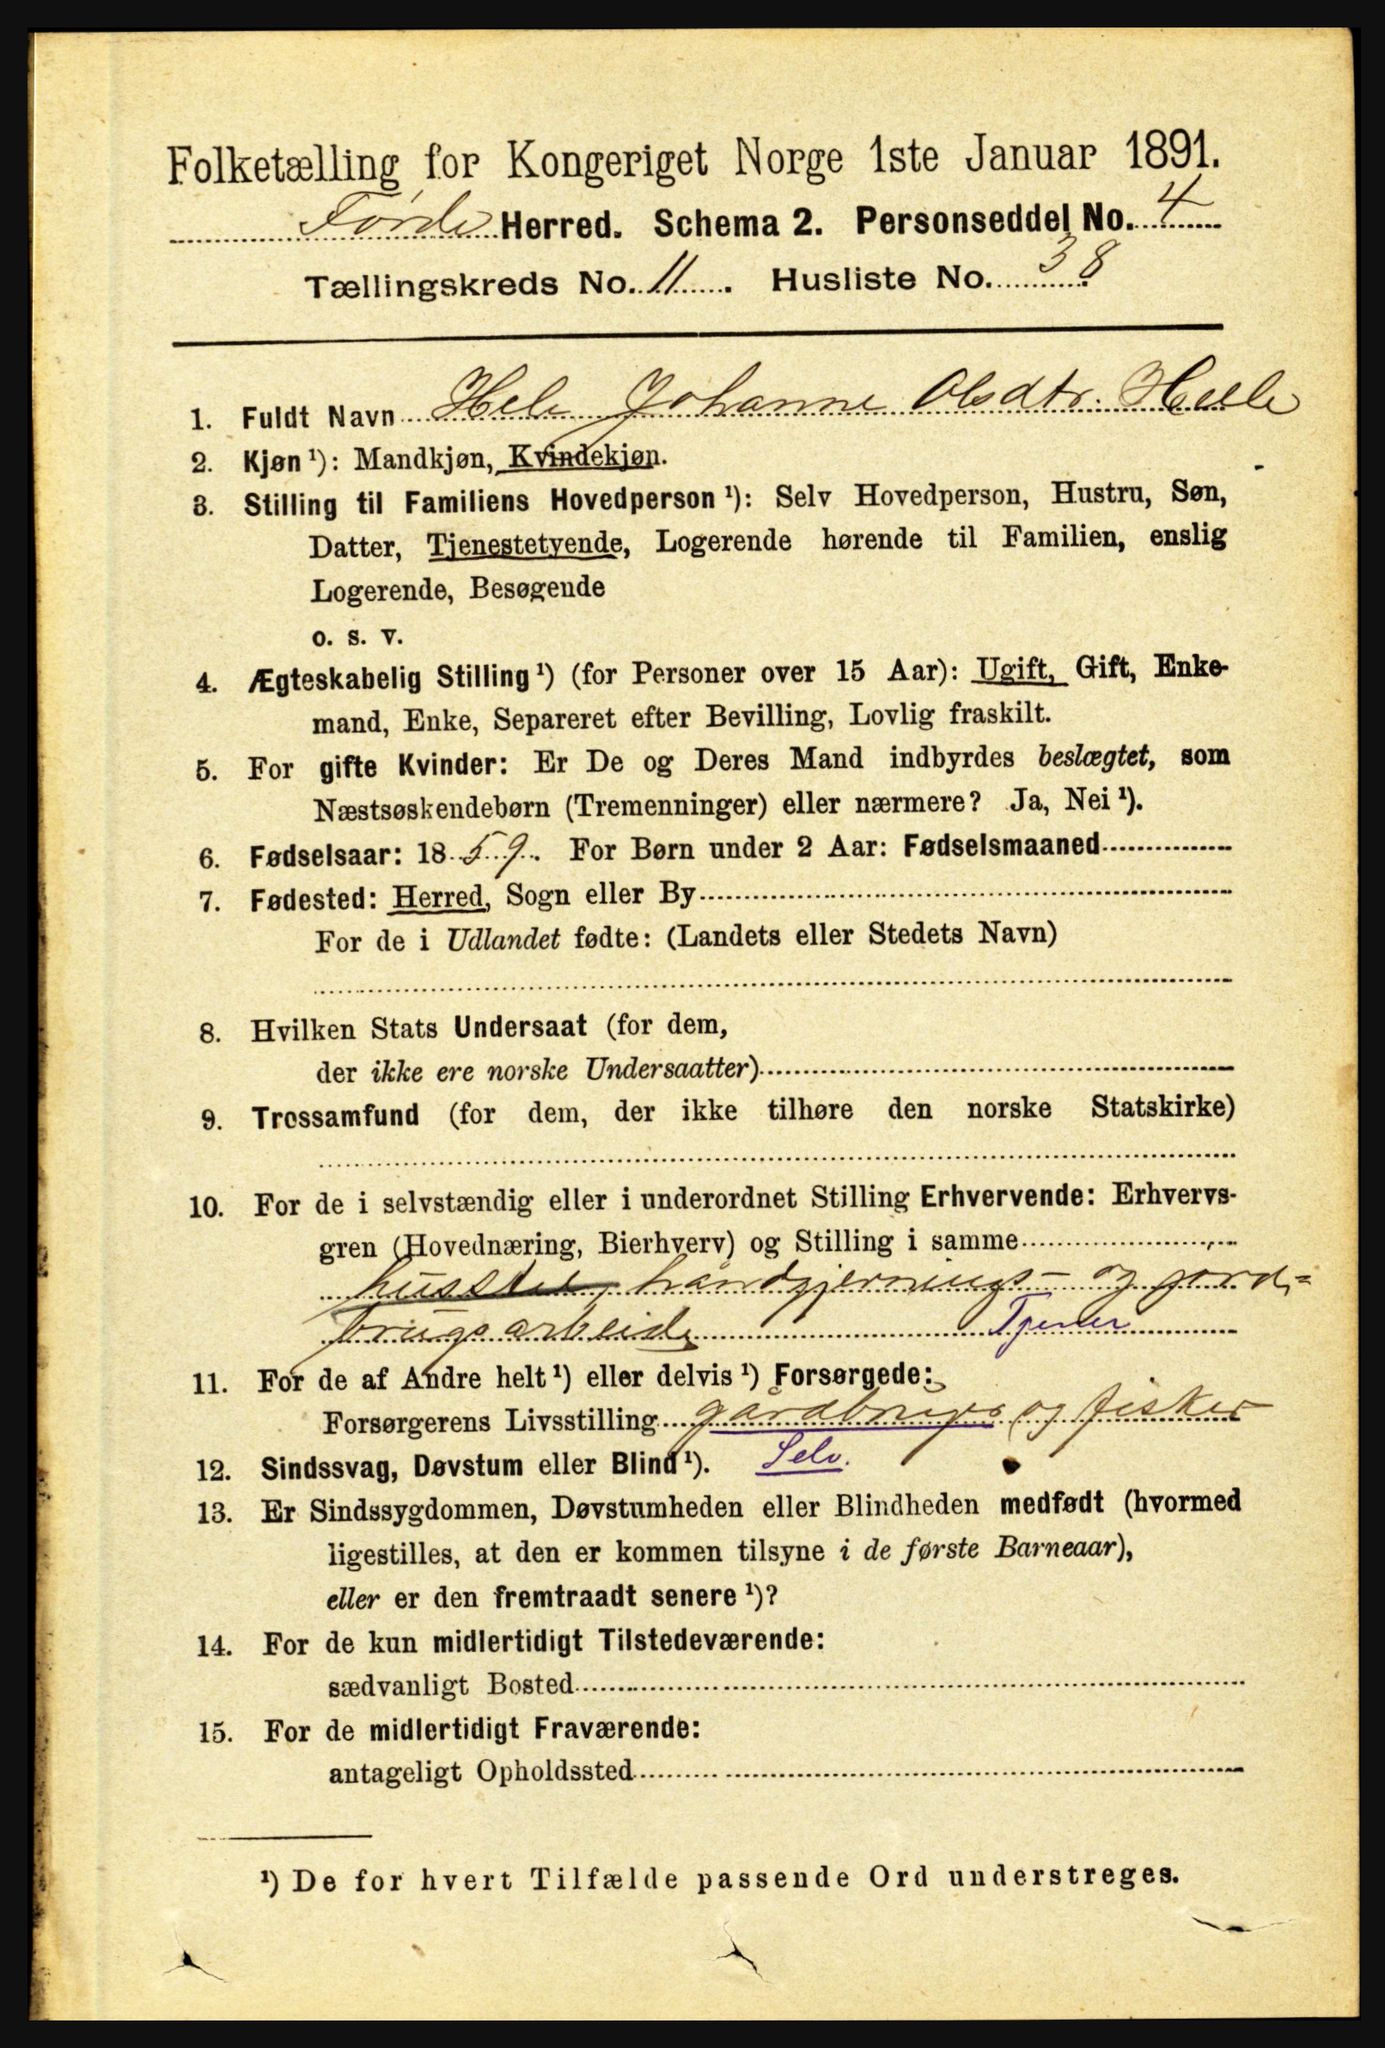 Folketælling for Kongeriget Norge 1ste Januar 1891.
Førde Herred. Schema 2. Personseddel No. 4
Tællingskreds No. 11. Husliste No. 38
1. Fuldt Navn Johanne Olsdtr. Helle
2. Kjøn¹): Mandkjøn, Kvindekjøn.
3. Stilling til Familiens Hovedperson¹): Selv Hovedperson, Hustru, Søn,
Datter, Tjenestetyende, Logerende hørende til Familien, enslig
Logerende, Besøgende
o. s. v.
4. Ægteskabelig Stilling¹) (for Personer over 15 Aar): Ugift, Gift, Enke-
mand, Enke, Separeret efter Bevilling, Lovlig fraskilt.
5. For gifte Kvinder: Er De og Deres Mand indbyrdes beslægtet, som
Næstsøskendebørn (Tremenninger) eller nærmere? Ja, Nei¹).
6. Fødselsaar: 1859. For Børn under 2 Aar: Fødselsmaaned
7. Fødested: Herred, Sogn eller By
For de i Udlandet fødte: (Landets eller Stedets Navn)
8. Hvilken Stats Undersaat (for dem,
der ikke ere norske Undersaatter)
9. Trossamfund (for dem, der ikke tilhøre den norske Statskirke)
10. For de i selvstændig eller i underordnet Stilling Erhvervende: Erhvervs-
gren (Hovednæring, Bierhverv) og Stilling i samme
husstel, håndgjernings- og jord-
brugsarbeide Tjener
11. For de af Andre helt¹) eller delvis¹) Forsørgede:
Forsørgerens Livsstilling gårdbruger og fisker
12. Sindssvag, Døvstum eller Blind¹). Selv.
13. Er Sindssygdommen, Døvstumheden eller Blindheden medfødt (hvormed
ligestilles, at den er kommen tilsyne i de første Barneaar),
eller er den fremtraadt senere¹)?
14. For de kun midlertidigt Tilstedeværende:
sædvanligt Bosted
15. For de midlertidigt Fraværende:
antageligt Opholdssted
¹) De for hvert Tilfælde passende Ord understreges.